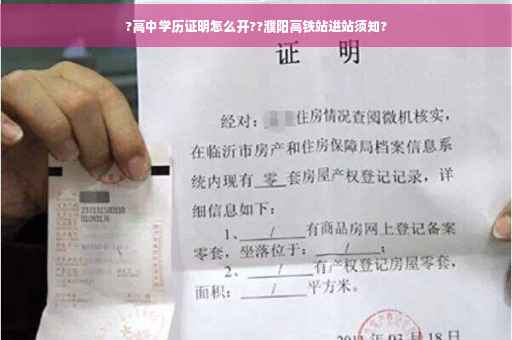 ?高中学历证明怎么开??濮阳高铁站进站须知?
证 明
经对: 住房情况查阅微机核实,
在临沂市房产和住房保障局档案信息系
统内现有 零 套房屋产权登记记录，详
细信息如下:
1、 / 有商品房网上登记备案
零套，坐落位于: / ;
2、 / 有产权登记房屋零套,
面积: / 平方米。
03 月 18 日